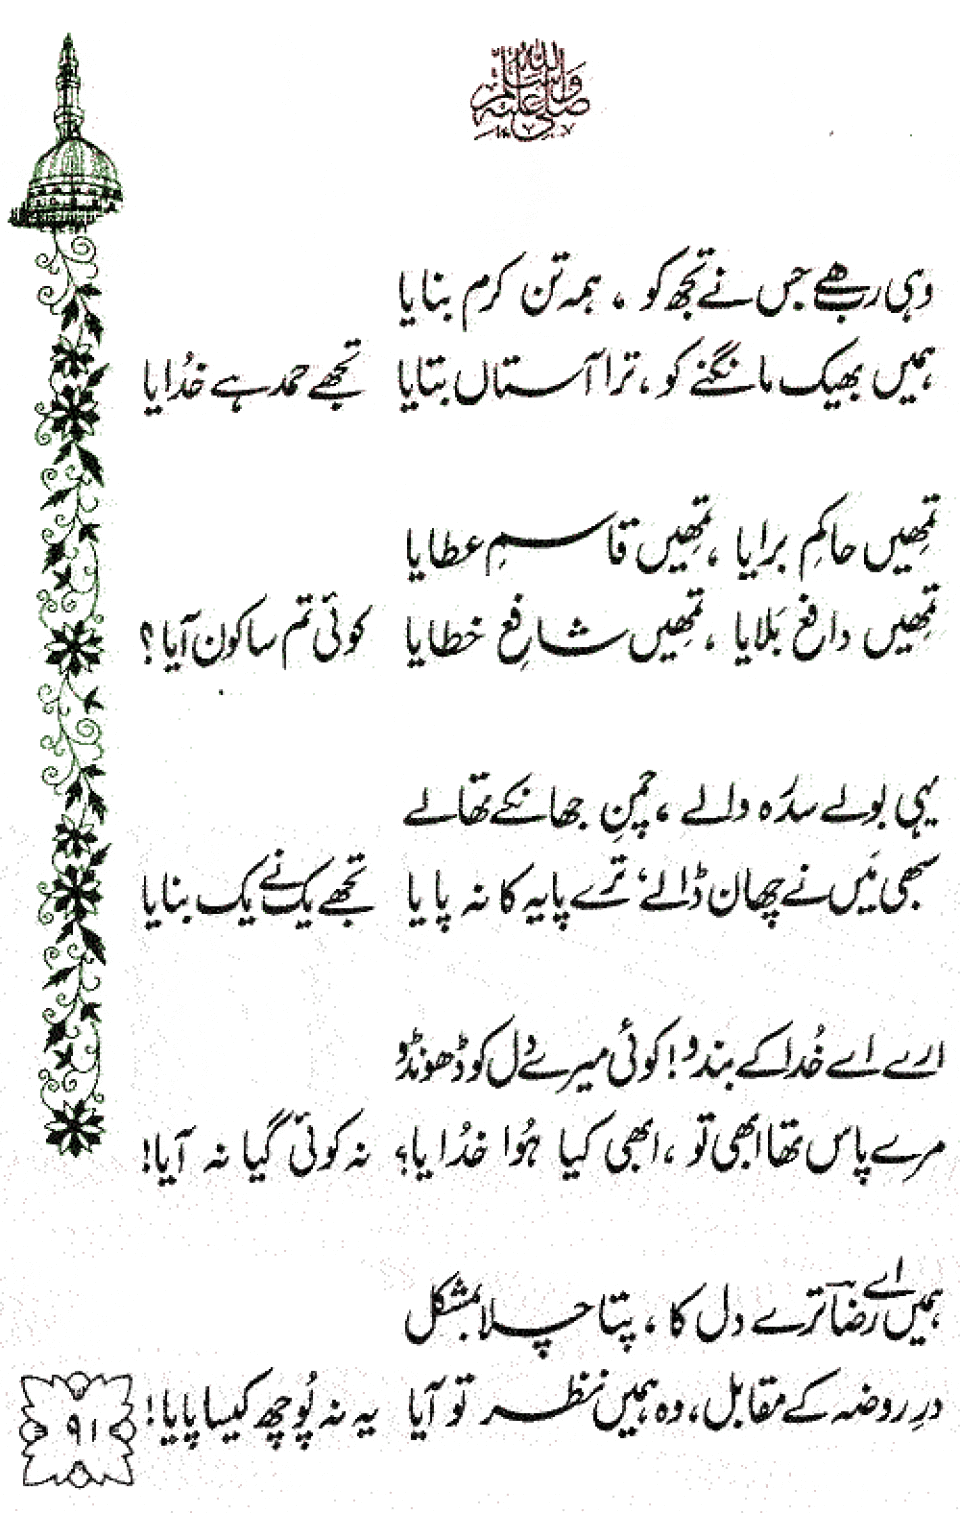 صلی اللہ علیہ وسلم
وہی رب ہے جس نے تجھ کو ، ہمہ تن کرم بنایا
ہمیں بھیک مانگنے کو ، ترا آستاں بتایا تجھے حمد ہے خُدایا
تمھیں حاکمِ برایا ، تمھیں قاسمِ عطایا
تمھیں دافعِ بَلایا ، تمھیں شافعِ خطایا کوئی تم سا کون آیا ؟
یہی بولے سدرُہ والے ، چمنِ جہاں کے تھالے
سبھی مَیں نے چھان ڈالے ، ترے پایہ کا نہ پایا تجھے یک نے یک بنایا
ارے اے خُدا کے بندو ! کوئی میرے دل کو ڈھونڈو
مرے پاس تھا ابھی تو ، ابھی کیا ہُوا خدُایا ؟ نہ کوئی گیا نہ آیا !
ہمیں اے رضاؔ ترے دل کا ، پتا چلا بمشکل
درِ روضہ کے مقابل ، وہ ہمیں نظر تو آیا یہ نہ پُوچھ کیسا پایا !
۹۱